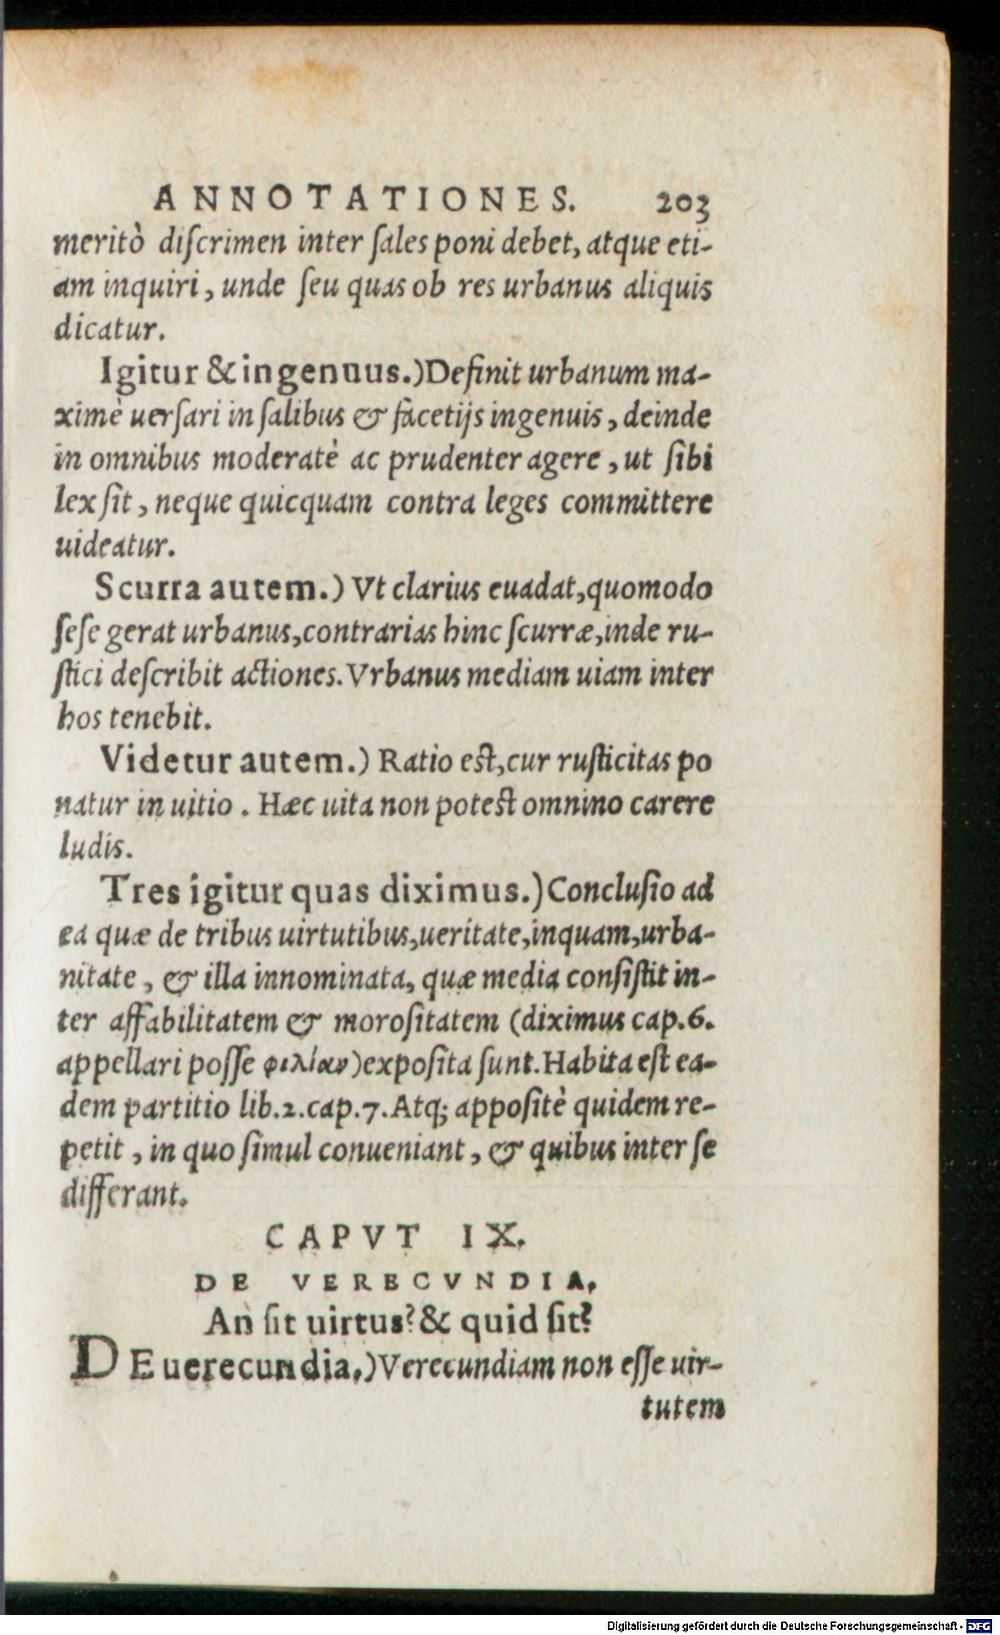 ANNOTATIONES. 203
meritò diſcrimen inter ſales poni debet, atque eti-
am inquiri, unde ſeu quas ob res urbanus aliquis
dicatur.
Igitur & ingenuus.) Definit urbanum ma-
ximè uerſari in ſalibus & facetijs ingenuis, deinde
in omnibus moderatè ac prudenter agere, ut ſibi
lex ſit, neque quicquam contra leges committere
uideatur.
Scurra autem.) Vt clarius euadat, quomodo
ſeſe gerat urbanus, contrarias hinc ſcurræ, inde ru-
ſtici deſcribit actiones. Vrbanus mediam uiam inter
hos tenebit.
Videtur autem.) Ratio eſt, cur ruſticitas po
natur in uitio. Hæc uita non poteſt omnino carere
ludis.
Tres igitur quas diximus.) Concluſio ad
ea quæ de tribus uirtutibus, ueritate, inquam, urba-
nitate, & illa innominata, quæ media conſiſtit in-
ter affabilitatem & moroſitatem (diximus cap. 6.
appellari poſſe φιλίαν) expoſita ſunt. Habita eſt ea-
dem partitio lib. 2. cap. 7. Atq; appoſitè quidem re-
petit, in quo ſimul conueniant, & quibus inter ſe
differant.
CAPVT IX.
DE VERECVNDIA,
An ſit uirtus? & quid ſit?
DE uerecundia.) Verecundiam non eſſe uir-
tutem
Digitalisierung gefördert durch die Deutsche Forschungsgemeinschaft - DFG